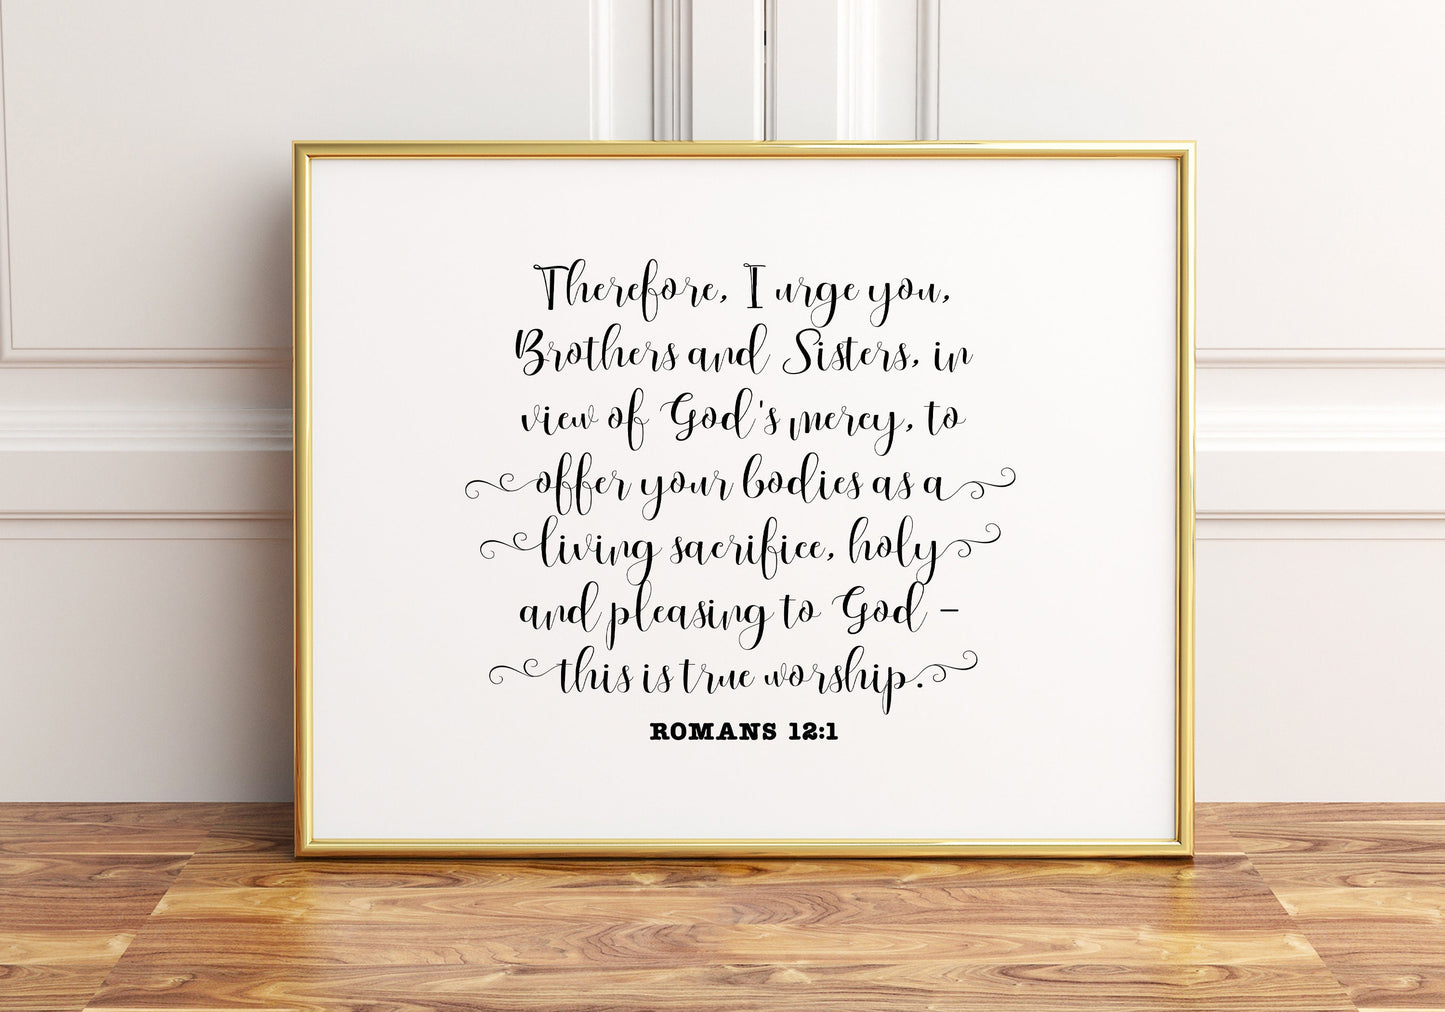 Therefore, I urge you,
Brothers and Sisters, in
view of God's mercy, to
offer your bodies as a
living sacrifice, holy
and pleasing to God –
this is true worship.
ROMANS 12:1